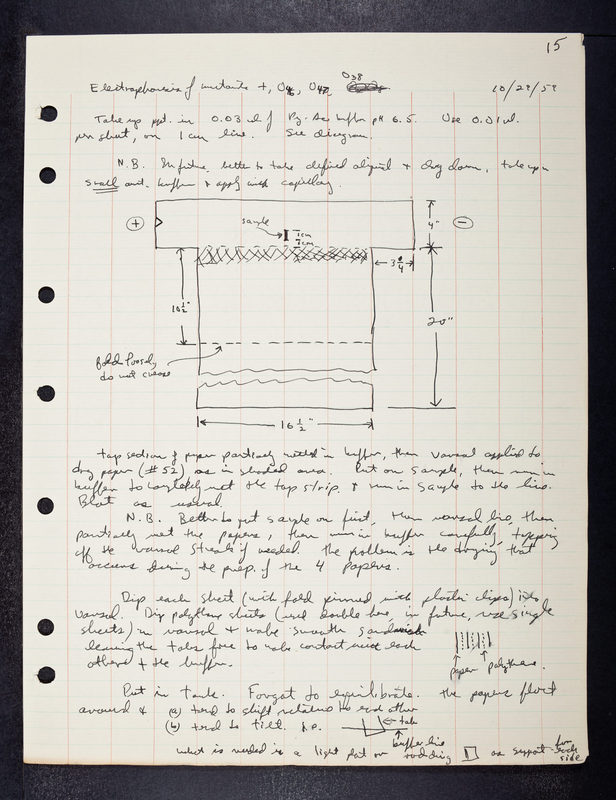 15
Electrophoresis of mutants +, O46, O47, O38
10/28/58
Take up ppt. in 0.03 ml of Py. Ac buffer pH 6.5. Use 0.01 ml.
per sheet, on 1 cm line. See diagram.
N.B. In future, better to take defined aliquot + dry down, take up in
small amt. buffer + apply with capillary.
+
sample
1 cm
1 cm
−
4"
3 3/4
10 1/2"
20"
fold loosely
do not crease
16 1/2"
top section of paper partially wetted in buffer, then varsol applied to
dry paper (#52) as in shaded area. Put on sample, then run in
buffer to completely wet the top strip, & run in sample to the line.
Blot as usual.
N.B. Better to put sample on first, then varsol line, then
partially wet the papers, then run in buffer carefully, topping
off the varsol streak if needed. The problem is the drying that
occurs during the prep. of the 4 papers.
Dip each sheet (with fold pinned with plastic clips) into
varsol. Dip polythene sheets (used double here, in future, use single
sheets) in varsol + make smooth sandwich
leaving the tabs free to make contact with each
other + the buffer.
paper polythene.
Put in tank. Forgot to equilibrate. The papers float
around & (a) tend to shift relative to each other
(b) tend to tilt. i.e.
tab
buffer line
what is needed is a light flat on as support from each
side